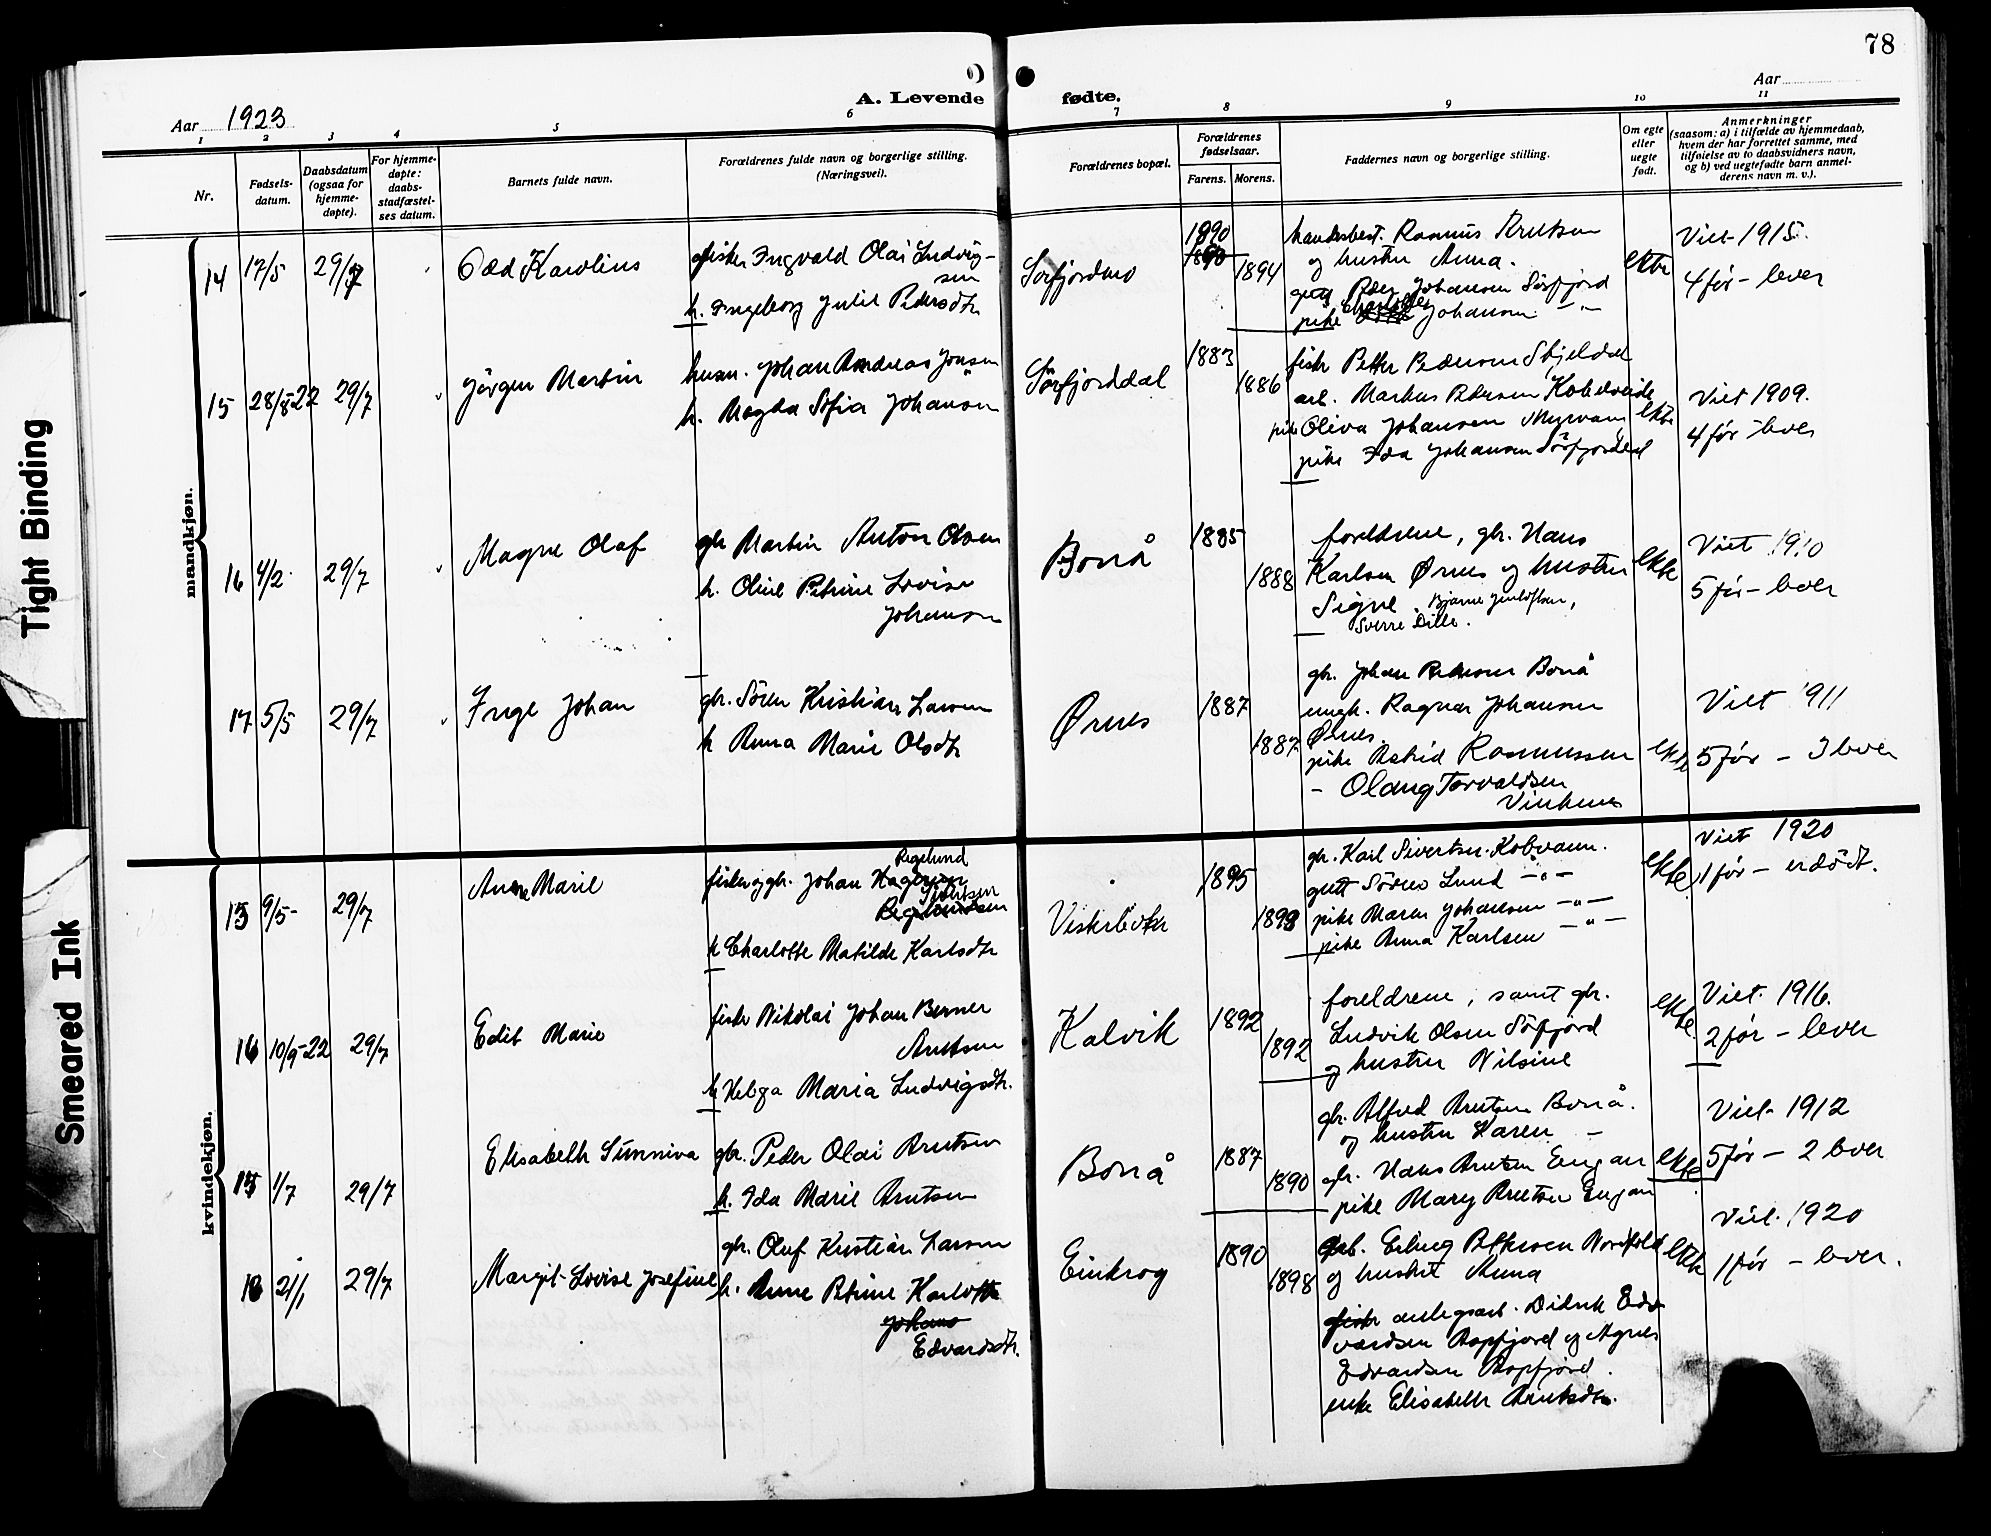 78
A. Levende fødte.
Aar 1923
Aar
1 2 3 4 5 6 7 8 9 10 11
Nr.
Fødsels-
datum.
Daabsdatum
(ogsaa for
hjemme-
døpte).
For hjemme-
døpte:
daabs-
stadfæstel-
ses datum.
Barnets fulde navn.
Forældrenes fulde navn og borgerlige stilling.
(Næringsvei).
Forældrenes bopæl.
Forældrenes
fødselsaar.
Farens. Morens.
Faddernes navn og borgerlige stilling.
Om egte
eller
uegte
født.
Anmerkninger
(saasom: a) i tilfælde av hjemmedaab,
hvem der har forrettet samme, med
tilføielse av to daabsvidners navn,
og b) ved uegtefødte barn anmel-
derens navn m. v.).
Tight Binding
Smeared Ink
mandkjøn.
14 17/5 29/7 Odd Karolius
fisker Ingvald Olai Ludvig-
sen
h. Ingeborg Julie Pedersdtr
Sørfjordmo
1890
1894
handelsbest. Rasmus Knutsen
og hustru Anna.
gutt Peder Johansen Sørfjord
pike Charlotte Johansen - " -
ekte
Viet 1915.
4 før - lever
15 28/8-22 29/7 Jörgen Martin
husm. Johan Andreas Jönsen
h. Magda Sofia Johansen
Sørfjorddal
1883
1886
fisk Petter Pedersen Skjeldal
arb. Markus Petersen Kobedveide
pike Oliva Johansen Myrvam
pike Ida Johansen Sörfjorddal
ekte
Viet 1909.
4 før - lever
16 4/2 29/7 Magne Olaf
gbr Martin Anton Olsen
h. Oline Petrine Lovise
Johansen
Bonå
1885
1888
foreldrene, gbr. Hans
Karlsen Ørnes og hustru
Signe. Bjarne Jentoftsen,
Sverre Dille.
ekte
Viet 1910
5 før - lever
17 5/5 29/7 Inge Johan
gbr. Sören Kristian Larsen
h Anna Marie Olsdtr
Ørnes
1887
1887
gbr. Johan Pedersen Bonå
ungk. Ragnar Johansen
Ørnes.
pike Astrid Rasmussen
- Olaug Torvaldsen
Vinkenes
ekte
Viet 1911
5 før - 3 lever
kvindekjøn.
13 9/5- 29/7 Anne Marie
fisker og gbr. Johan Hagerup
Regelund
Sivertsen
h Charlotte Matilde Karlsdtr
1895
1899
gbr. Karl Sivertsen Kobvann.
gutt Søren Lund - " -
pike Maren Johansen - " -
pike Anna Karlsen - " -
ekte
Viet 1920
1 før - er död.
14 10/9-22 29/7 Edit Marie
fisker Nikolai Johan Berner
Arntsen
h Helga Maria Ludvigsdtr.
Kalvik
1892
1892
foreldrene, samt gbr.
Ludvik Olsen Sörfjord
og hustru Nilsine
ekte
Viet. 1916.
2 før - lever
15 1/7 29/7 Elisabeth Sunniva
gbr. Peder Olai Arntsen
h. Ida Marie Arntsen
Bonå
1887
1890
gbr. Alfred Arntsen Bonå.
og hustru Karen -
gbr. Hans Arntsen Engan
pike Mary Arntsen Engan
ekte
Viet 1912
5 før - 2 lever
16 21/1 29/7 Margit Lovise Josefine
gbr. Oluf Kristian Larsen
h. Anne Petrine Karlotte
Johans
Edvardsdtr.
Einkrog
1890
1898
arb. Erling Pettersen Nordfold
og hustru Anna
fisker anlegsarb. Didrik Ed-
vardsen Hopfjord og Agnes
Edvardsen Hopfjord.
enke Elisabeth Arntsdtr.
ekte
Viet. 1920
1 før - lever.